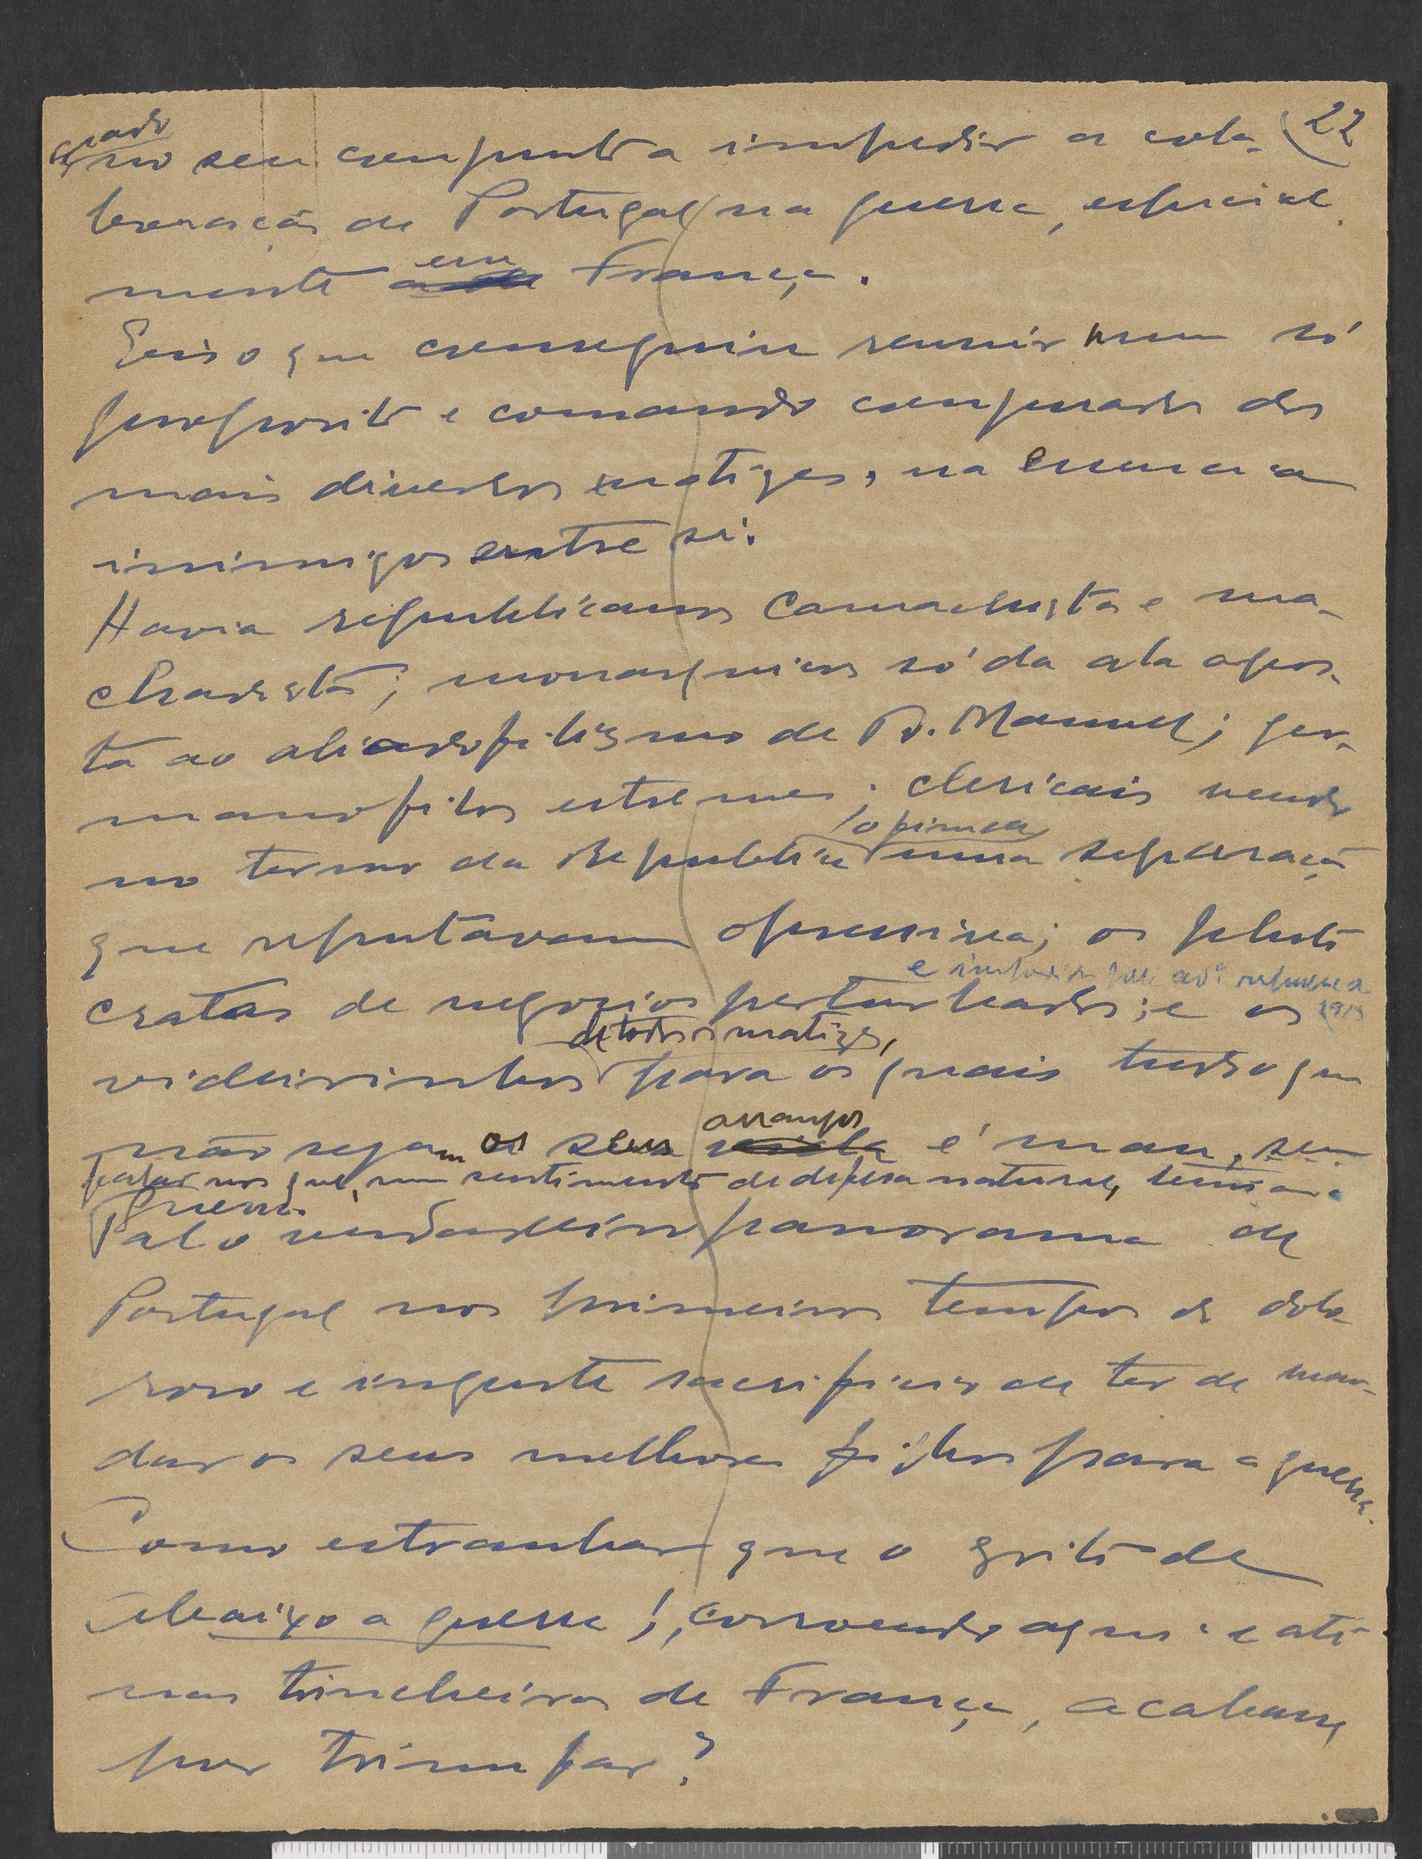 22
no seu conjunto a impedir a cola-
boração de Portugal na guerra, especial-
mente em França.
Eis o que conseguiu reunir num só
proposito e comando conjurados dos
mais diversos matizes, na essencia
inimigos entre si.
Havia republicanos camachistas e ma-
chadistas; monarquicos só da ala opos-
ta ao aliadofilismo de D. Manuel; ger-
manofilos estremes; clericais vendo
no termo da Republica o fim da separação
que reputavam opressiva; os pluto
cratas de negocios perturbados; e os
de todos os matizes,
videirinhos para os quais tudo que
arranjos
não sejam os seus é mau, sem
falar nos que, num sentimento de defesa natural, temiam a
guerra.
Tal o verdadeiro panorama de
Portugal nos primeiros tempos do dolo-
roso e ingente sacrificio de ter de man-
dar os seus melhores filhos para a guerra.
Como estranhar que o grito de
abaixo a guerra!, corroendo aqui e até
nas trincheiras de França, acabasse
por triunfar?